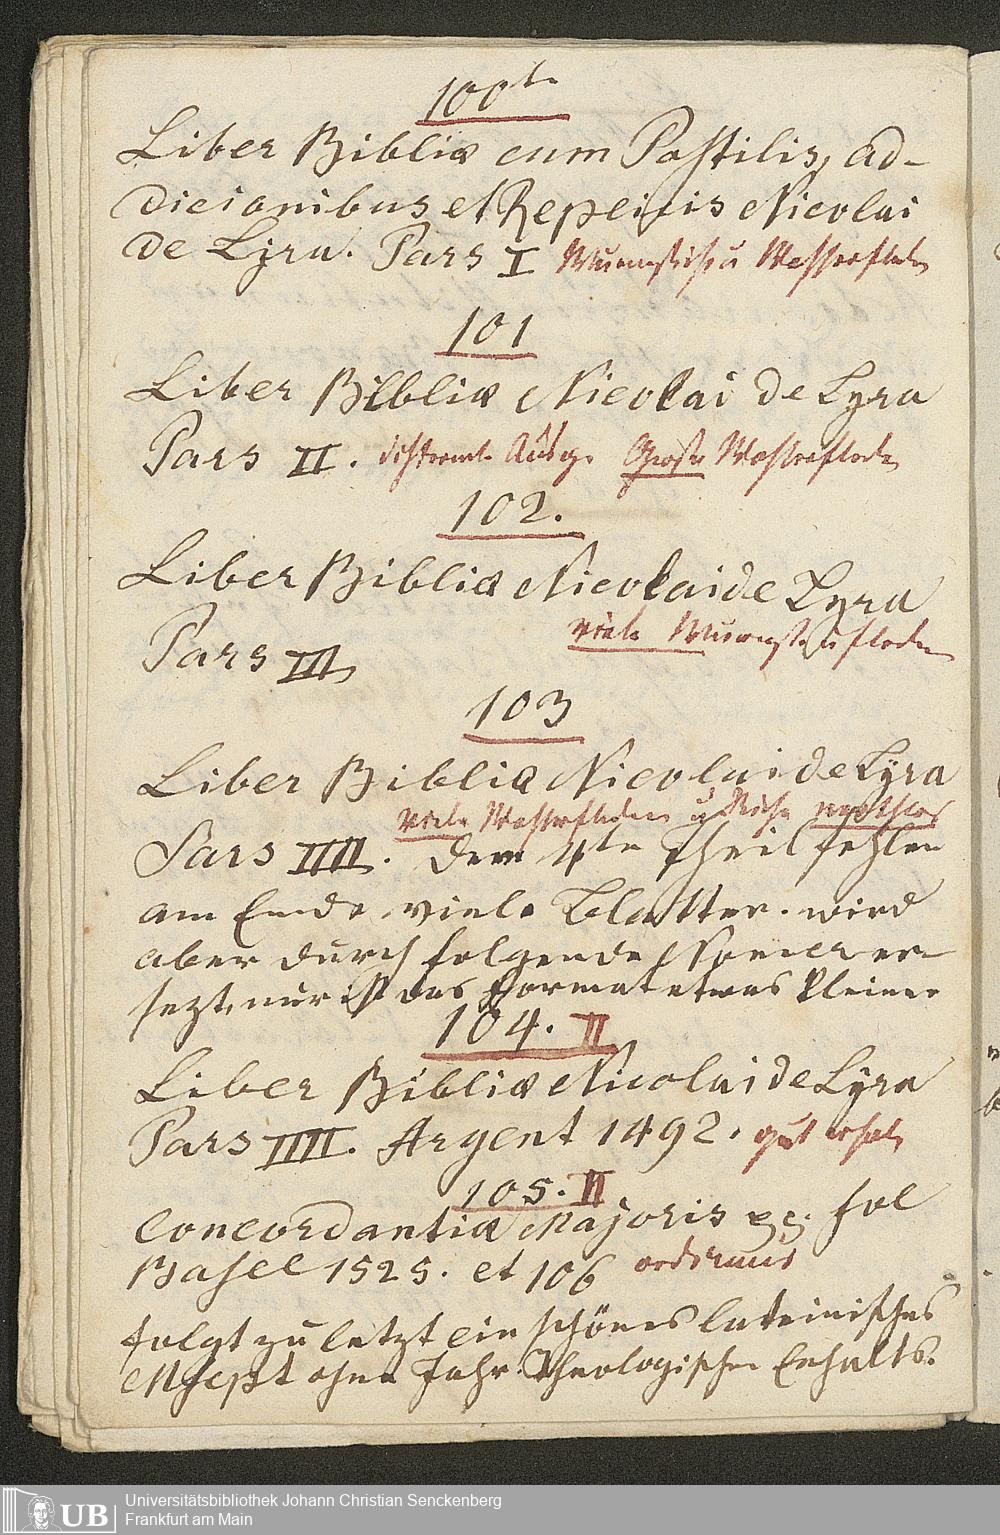 100te
Liber Bibliæ cum Postilis, ad-
dicionibus et Repeicis Nicolai
de Lyra. Pars I Wurmstiche u Wasserflecken
101
Liber Bibliæ Nicolai de Lyra
Pars II. Große Wasserflecke
102.
Liber Bibliæ Nicolai de Lyra
Pars III viele Wurmst. u flecken
103
Liber Bibliæ Nicolai de Lyra
viele Wasserflecken u Stiche werthlos
Pars IIII. Dem 4ten Theil fehlen
am Ende viele Blatter. wird
aber durch folgende Numer er-
sezt, nur ist das Format etwas kleiner
104. II
Liber Bibliæ Nicolai de Lyra
Pars IIII. Argent 1492. gut erhal
105. II
Concordantiæ Majoris pp. fol
Basel 1525. et 106 ordinair
folgt zu letzt ein schönes lateinisches
Mscpt ohne Jahr. Theologischen Enhalts.
UB
Universitätsbibliothek Johann Christian Senckenberg
Frankfurt am Main